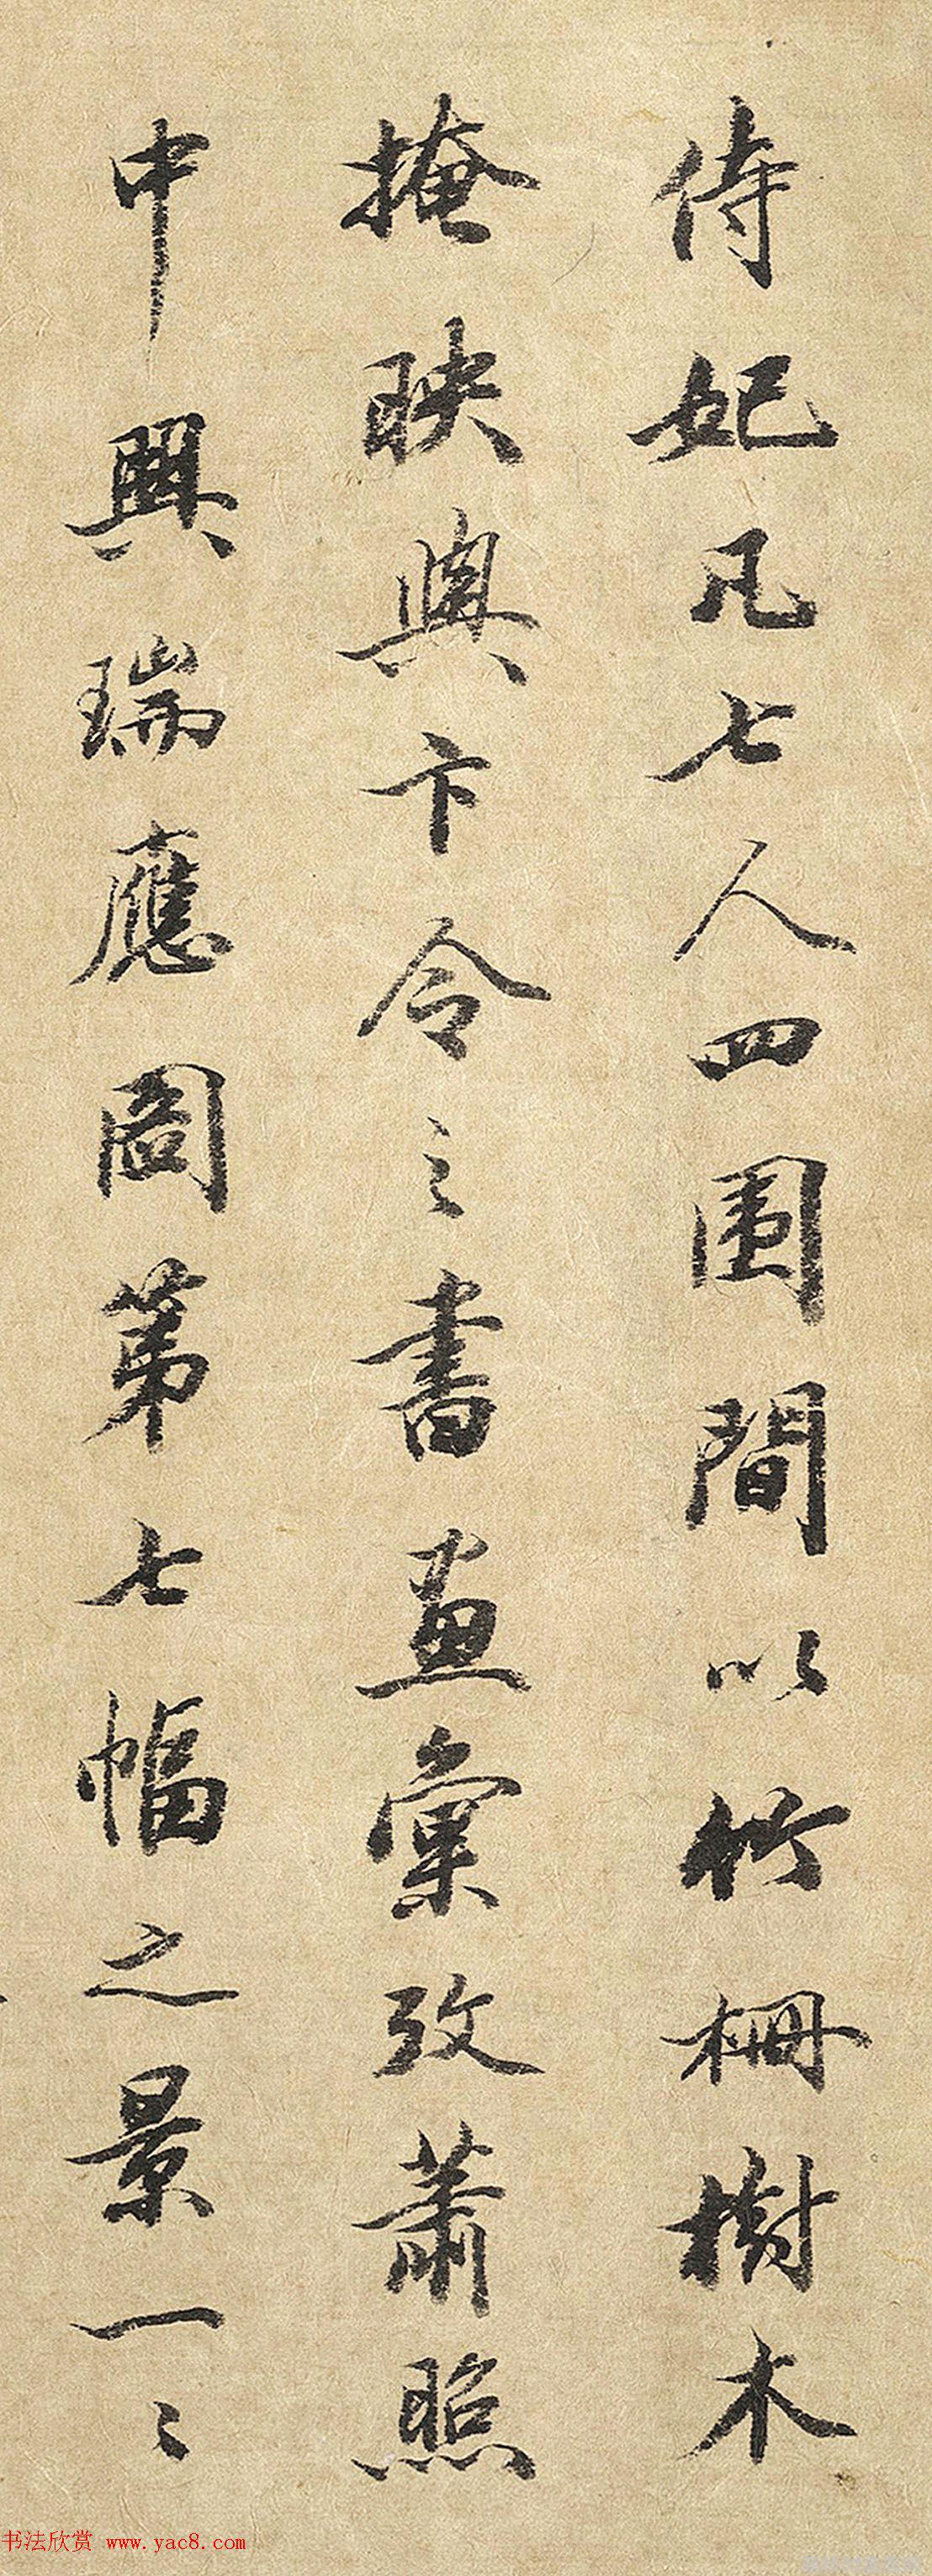 侍妃凡七人四圍間以竹柵樹木
掩映與卞令之書畫彙攷蕭照
中興瑞應圖第七幅之景一々
书法欣赏 www.yac8.com